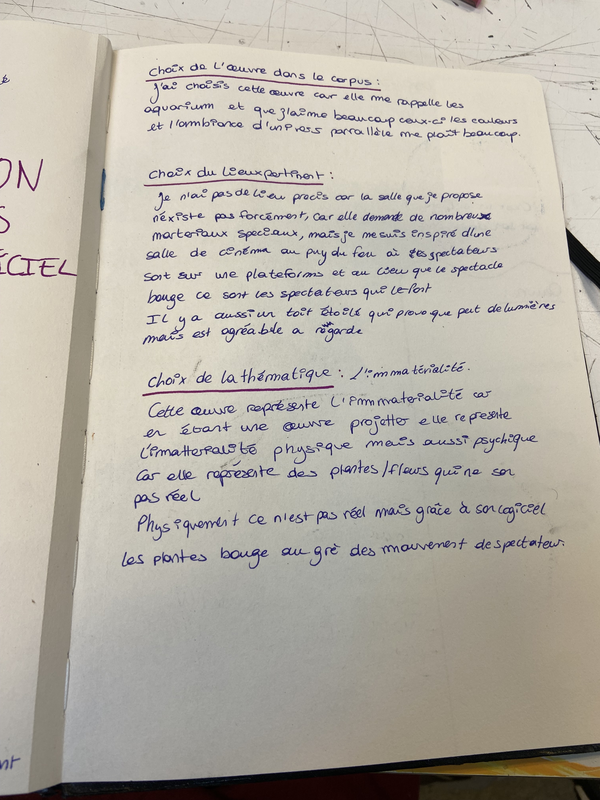 ON
S
ICIEL
nt
Choix de L'œuvre dans le corpus :
J'ai choisis cette œuvre car elle me rappelle les
aquarium et que j'aime beaucoup ceux-ci les couleurs
et l'ambiance d'univers parrallèle me plaît beaucoup.
Choix du Lieux pertinent :
Je n'ai pas de lieu precis car la salle que je propose
n'éxiste pas forcément, car elle demande de nombreux
marteriaux speciaux, mais je me suis inspiré d'une
salle de cinéma au puy du fou où les spectateurs
sont sur une plateforme et au lieu que le spectacle
bouge ce sont les spectateurs qui le font
Il y a aussi un toit étoilé qui provoque peut de lumières
mais est agréable a regarde
Choix de la thématique : L'immatérialité.
Cette œuvre représente L'immaterialité car
en étant une œuvre projetter elle represente
l'imatterialité physique mais aussi psychique
Car elle représente des plantes/fleurs qui ne son
pas réel
Physiquement ce n'est pas réel mais grâce à son logiciel
les plantes bouge au grè des mouvement de spectateur.